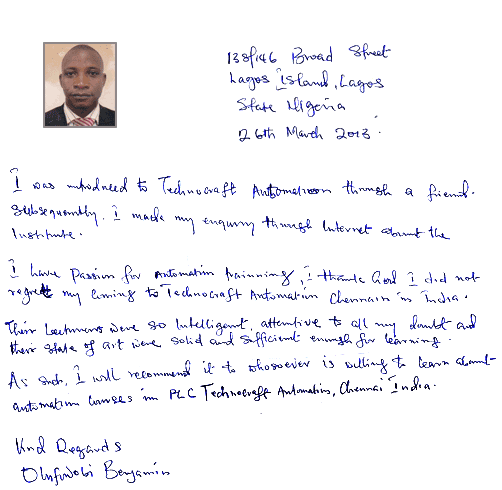 138/146 Broad Street
Lagos Island, Lagos
State Nigeria
26th March 2013.
I was introduced to Technocraft Automation through a friend.
Subsequently, I made my enquiry through Internet about the
Institute.
I have Passion for Automation Trainning, I thank God I did not
regret my coming to Technocraft Automation Chennain in India.
Their Lecturers were so Intelligent, attentive to all my doubt and
their state of art were solid and sufficient enough for learning.
As such, I will recommend it to whosoever is willing to learn about
automation courses in PLC Technocraft Automation, Chennai India.
Kind Regards
Benjamin